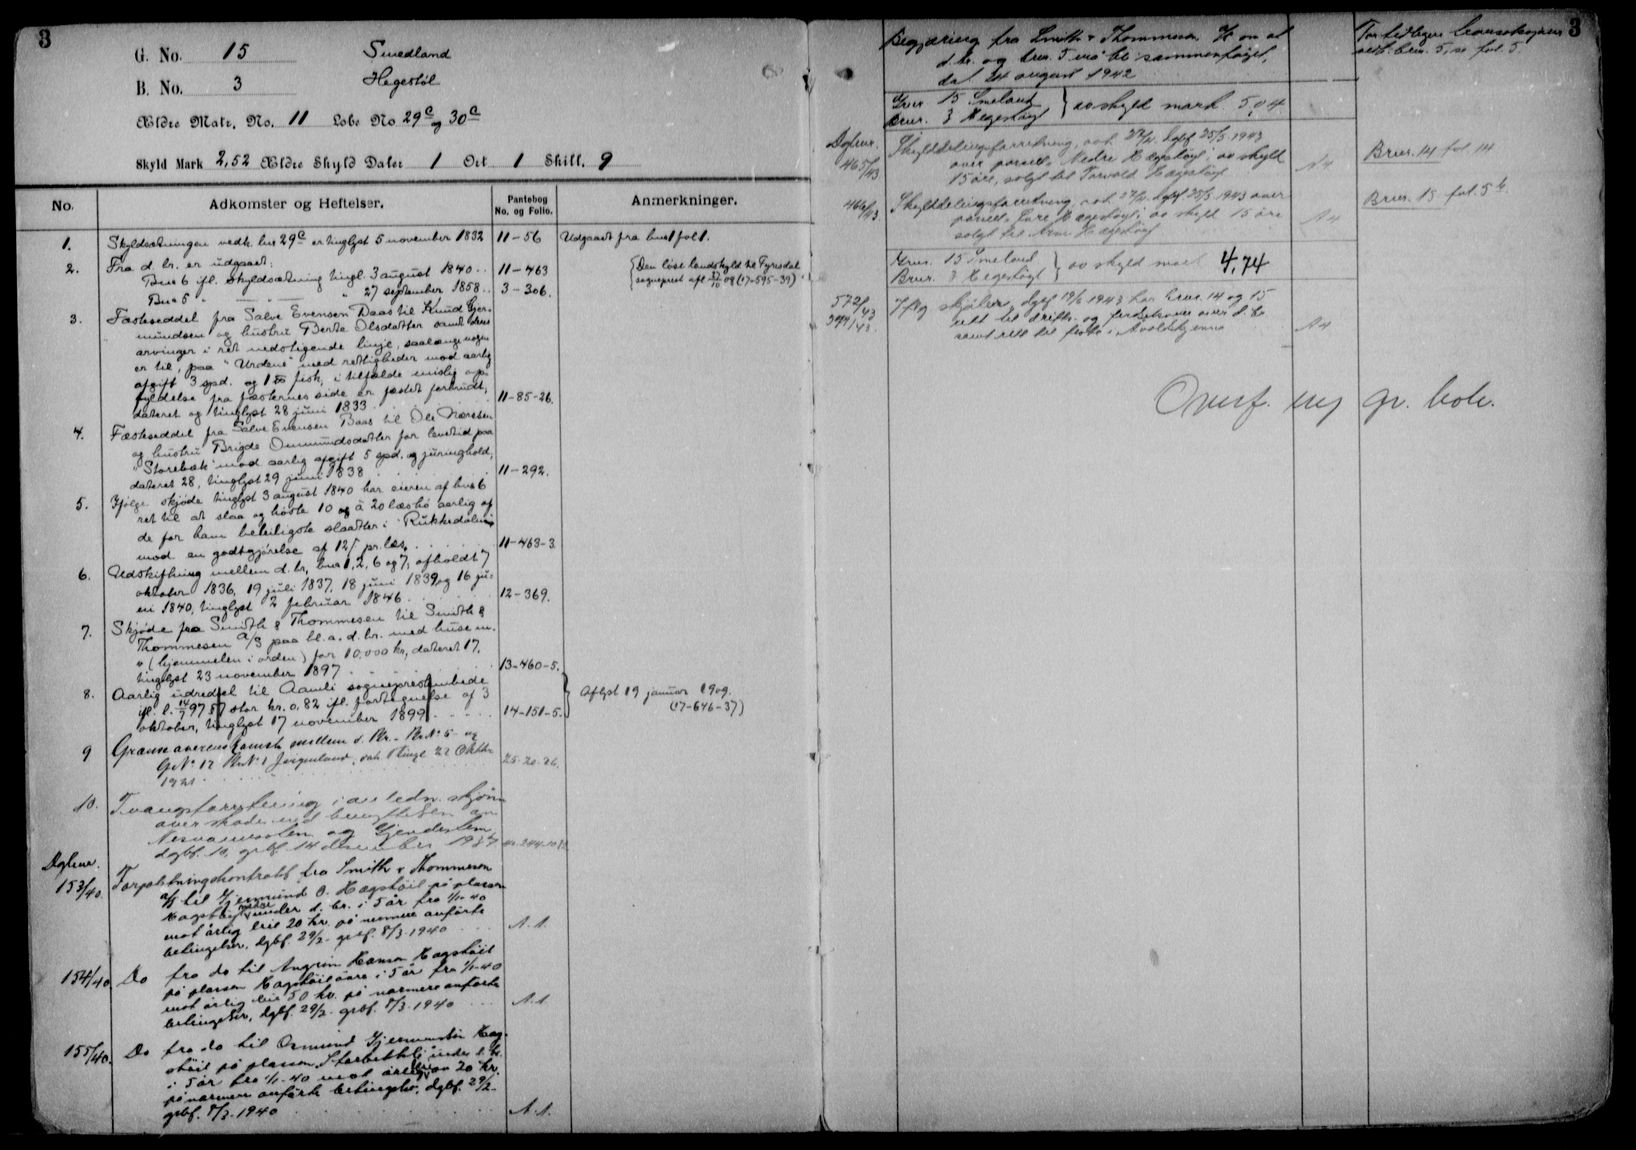 3
G. No. 15 Smedland
B. No. 3 Hegestøl
Ældre Matr. No. 11 Lobe No 29c og 30a
Skyld Mark 2,52 Ældre Skyld Daler 1 Ort 1 Skill. 9
No. Adkomster og Heftelser. Pantebog No. og Folio. Anmerkninger.
1. Skyldsætningen vedk. lne 29c er tinglyst 5 november 1832 11-56 Udgaaet fra bno 1 fol 1.
2. Fra d. br. er udgaaet:
Bno 6 ifl. skyldsætning tingl. 3 august 1840 11-463
Bno 5 " — " — " 27 september 1858 3-306.
{Den løse landskyld til Tyrisdal
sogneprest afl.
3. Fæsteseddel fra Salve Evensen Baas til Knud Gjer-
mundsen og hustru Berte Olsdatter samt deres
arvinger i ret nedstigende linje, saalænge nogen
er til, paa "Urdene" med rettigheder mod aarlig
afgift 3 spd. og 1 fisk, i tilfælde mislig op-
fyldelse fra fæsternes side er fæstet forbrudt,
dateret og tinglyst 28 juni 1833 11-85-26.
4. Fæsteseddel fra Salve Evensen Baas til Ole Næresen
og hustru Brigde Ommundsdatter for levetid paa
"Storebæk" mod aarlig afgift 5 spd. og juringhold,
dateret 28, tinglyst 29 juni 1838 11-292.
5. Ifølge skjøde tinglyst 3 august 1840 har eieren af bno 6
ret til at slaa og høste 10 à 20 læs hø aarlig af
de for ham beleiligste slaatter i Rukkedalen
mod en godtgjørelse af 12 pr. læs. 11-463-3
6. Udskiftning mellem d. br., bno 1, 2, 6 og 7, afholdt 7
oktober 1836, 19 juli 1837, 18 juni 1839 og 16 ju-
ni 1840, tinglyst 2 februar 1846 12-369.
7. Skjøde fra Smith & Thommesen til Smith &
Thommesen A/S paa bl. a. d. br. med huse m.
v. (hjemmelen i orden) for 10.000 kr, dateret 17,
tinglyst 23 november 1897 13-460-5.
8. Aarlig udredsel til Aamli sogneprestembede
ifl. l. 14/7 97 § 7 stor kr. 0,82 ifl. fortegnelse af 3
oktober, tinglyst 17 november 1899 14-151-5.
Aflyst 19 januar 1909.
(17-646-37)
9 Grænseoverenskomst mellem d. Br. - Br. No 5 og
G. No 12 Br. No 1 Jorgenland, tingl 22 Oktbr.
1921 25-20-26.
10. Tvangsforretning i anledn. skjøn
over skade ved benyttelsen av
Nesvannosten og Gjendestem,
dgbf. 10, grbf. 14 desember 1934
Dgbnr.
153/40. Forpaktningskontrakt fra Smith & Thommesen
A/S til Gjermund O. Hagstøil på plassen
Hagstøl nedre under d. br. i 5 år fra 1/1-40
mot årlig leie 20 kr. på nærmere anførte
betingelser, dgbf. 29/2- grbf. 8/3-1940 A.1.
154/40 Do fra do til Angrim Hansen Hagstøil
på plassen Hagstøil øvre i 5 år fra 1/1-40
mot årlig leie 50 kr. på nærmere anførte
betingelser, dgbf. 29/2- grbf. 8/3-1940 A.1.
155/40. Do fra do til Osmund Gjermundsen Hag-
støil på plassen Storbekkli under d. br.
i 5 år fra 1/1-40 mot årlig leie av 20 kr.
på nærmere anførte betingelser, dgbf. 29/2-
grbf. 8/3-1940 A.1.
3
Begjæring fra Smith & Thommesen A/S om at
d. br. og brnr. 5 må bli sammenføiet,
dat. 24 august 1942
For tidligere
vedk. brnr. 5, se fol. 5
Gnr. 15 Smeland
Brnr. 3 Hegestøyl } av skyld mark 5,04
Dgbnr.
465/43 Skylddelingsforretning, avh. dgbf 25/5 1943
over parsell, Nedre Hægestøyl, av skyld
15 øre, solgt til Torvald Hægestøyl A4 Brnr. 14 fol. 14
466/43 Skylddelingsforretning, avh. dgbf 25/5 1943 over
parsell, Hægestøyl, av skyld 15 øre
solgt til Hægestøyl A4 Brnr. 15 fol. 5
Gnr. 15 Smeland
Brnr. 3 Hegestøyl } av skyld mark 4,74
572/43 Iflg skjøter, dgbf 19/6 1943 har brnr. 14 og 15
rett til drifts- og ferdselsveier over d. br.
samt rett til fiske i A4
Overf. ny gr. bok.